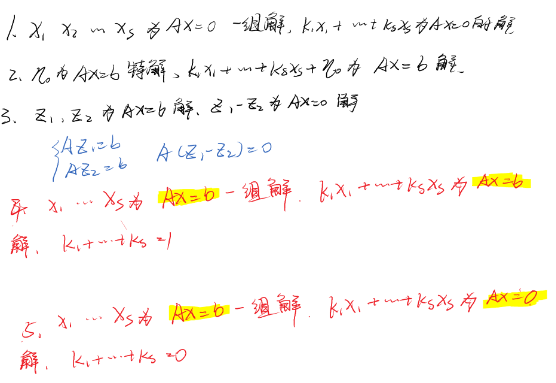 1. X₁ X₂ … Xₛ 为 AX=0 一组解, k₁X₁+…+kₛXₛ为AX=0的解
2. η₀为AX=b特解、k₁X₁+…+kₛXₛ+η₀为 AX=b 解.
3. Z₁, Z₂ 为AX=b解. Z₁-Z₂为AX=0 解
{AZ₁=b
AZ₂=b A(Z₁-Z₂)=0
4. X₁ … Xₛ为 AX=b 一组解. k₁X₁+…+kₛXₛ为 AX=b
解. k₁+…+kₛ=1
5. X₁ … Xₛ为 AX=b 一组解. k₁X₁+…+kₛXₛ为 AX=0
解, k₁+…+kₛ=0